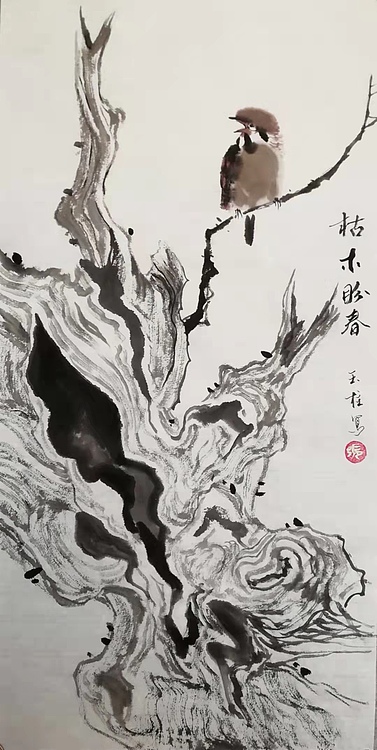 枯木盼春
玉柱写